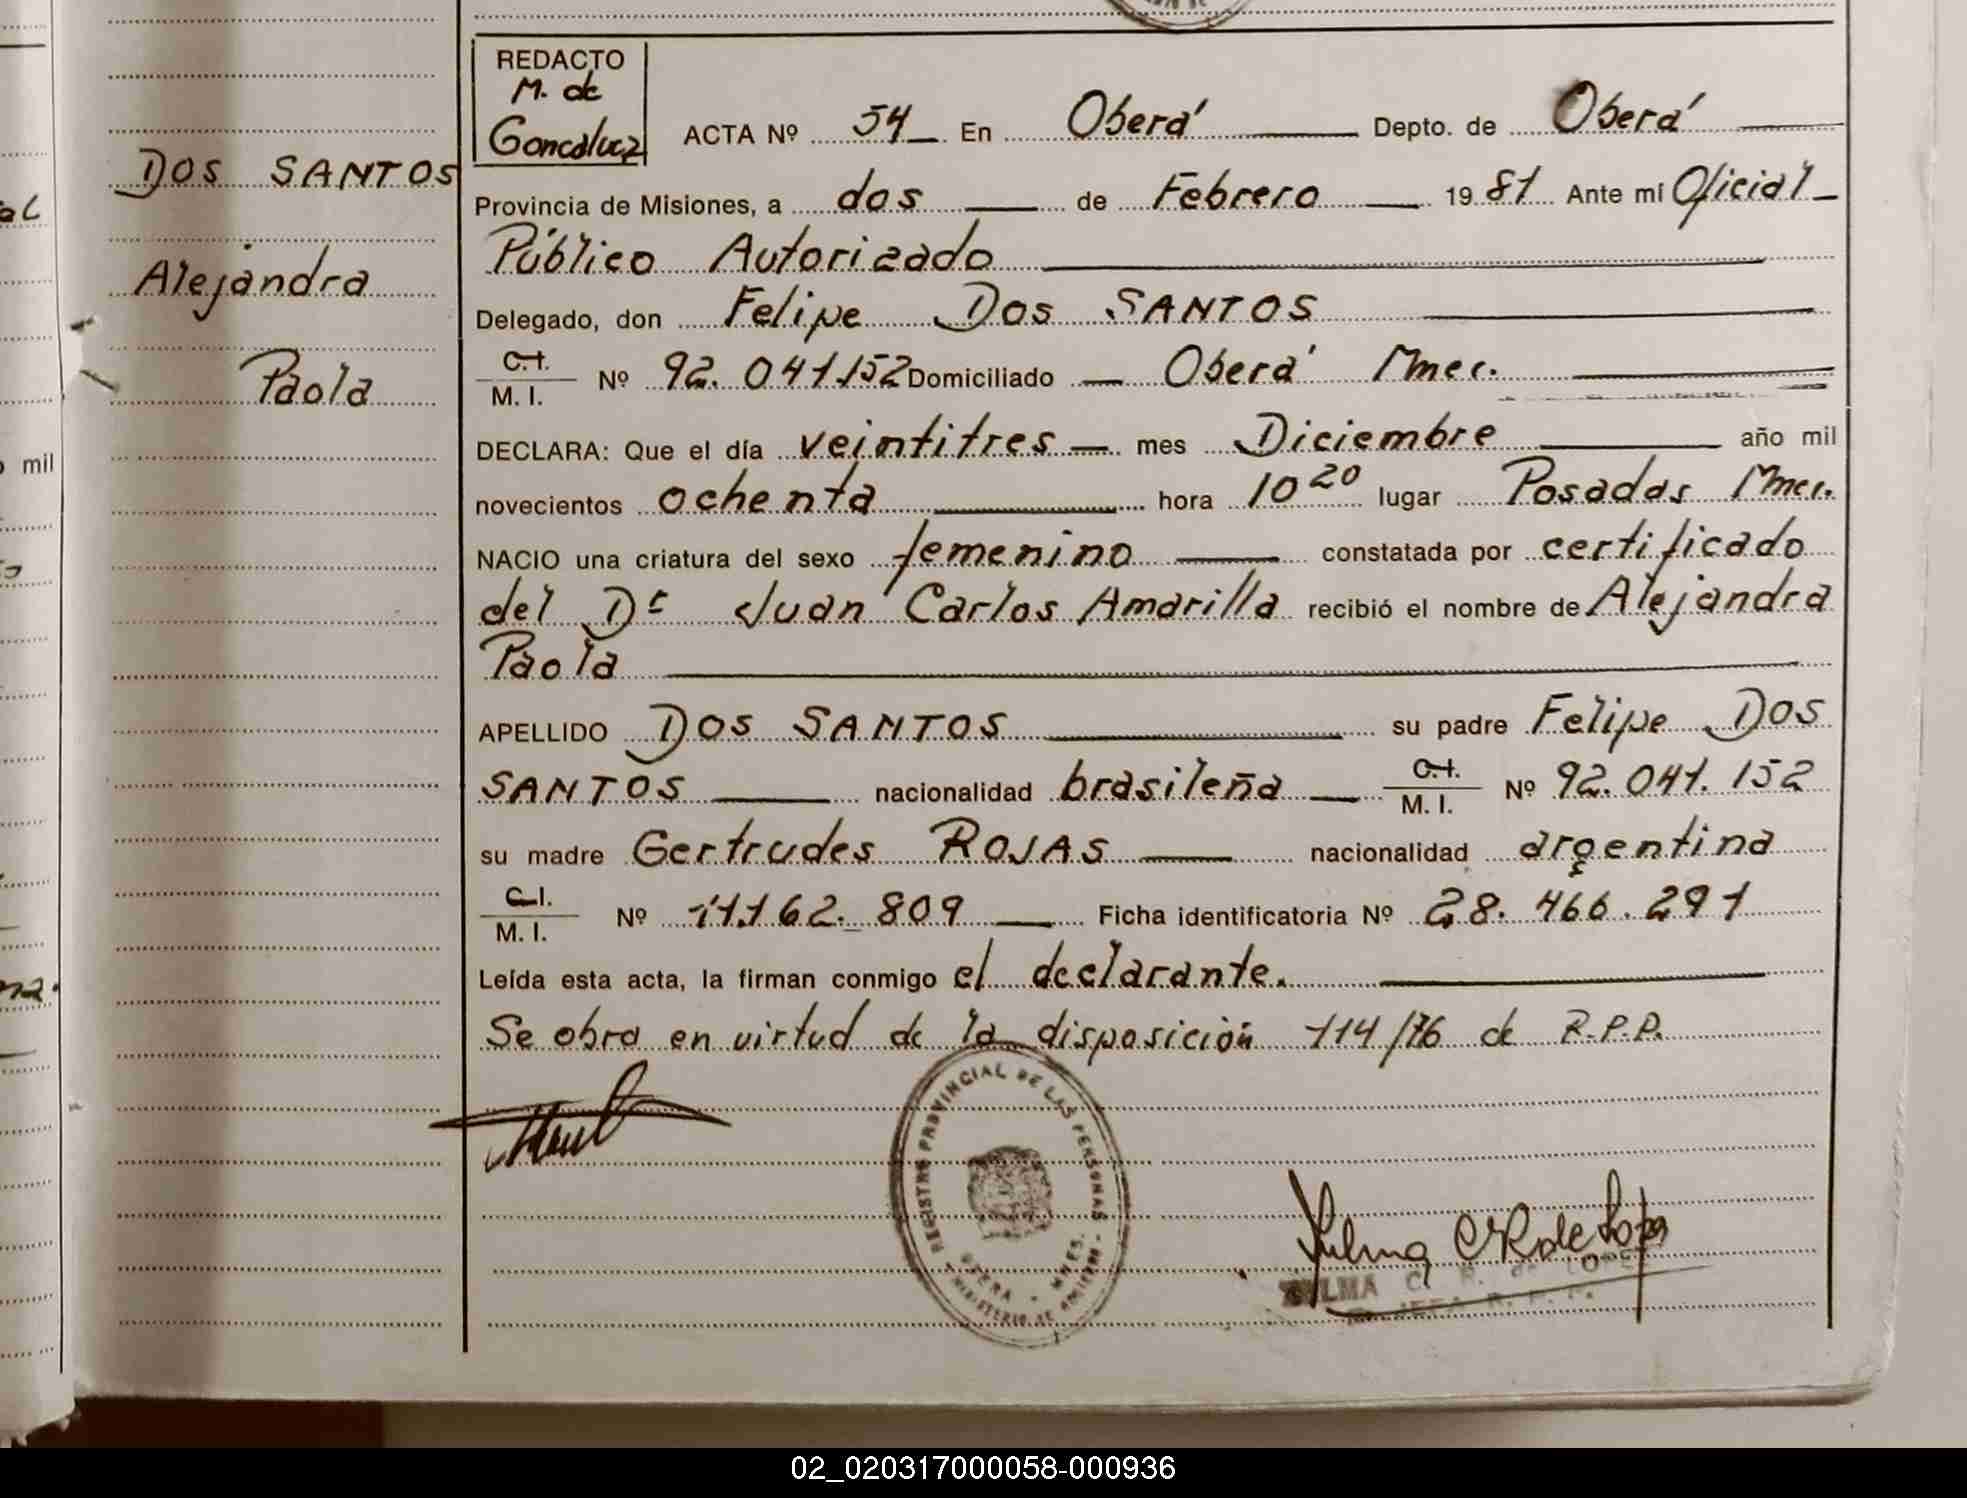 REDACTO
M. de
Goncalvez
ACTA Nº 54 En Oberá Depto. de Oberá
DOS SANTOS
Alejandra
Paola
Provincia de Misiones, a dos de Febrero 1981 Ante mí Oficial
Público Autorizado
Delegado, don Felipe DOS SANTOS
C.I.
M. I. Nº 92.041.152 Domiciliado Oberá Mnes.
DECLARA: Que el día veintitres mes Diciembre año mil
novecientos ochenta hora 10 20 lugar Posadas Mnes.
NACIO una criatura del sexo femenino constatada por certificado
del Dr Juan Carlos Amarilla recibió el nombre de Alejandra
Paola
APELLIDO DOS SANTOS su padre Felipe DOS
SANTOS nacionalidad brasileña C.I.
M. I. Nº 92.041.152
su madre Gertrudes ROJAS nacionalidad argentina
C.I.
M. I. Nº 11.162.809 Ficha identificatoria Nº 28.466.291
Leída esta acta, la firman conmigo el declarante.
Se obra en virtud de la disposición 114/76 de R.P.P.
REGISTRO PROVINCIAL DE LAS PERSONAS
OBERA - MNES.
MINISTERIO DE
ZULMA C. R. de LOPEZ
JEFA R. P. P.
mil
02_020317000058-000936